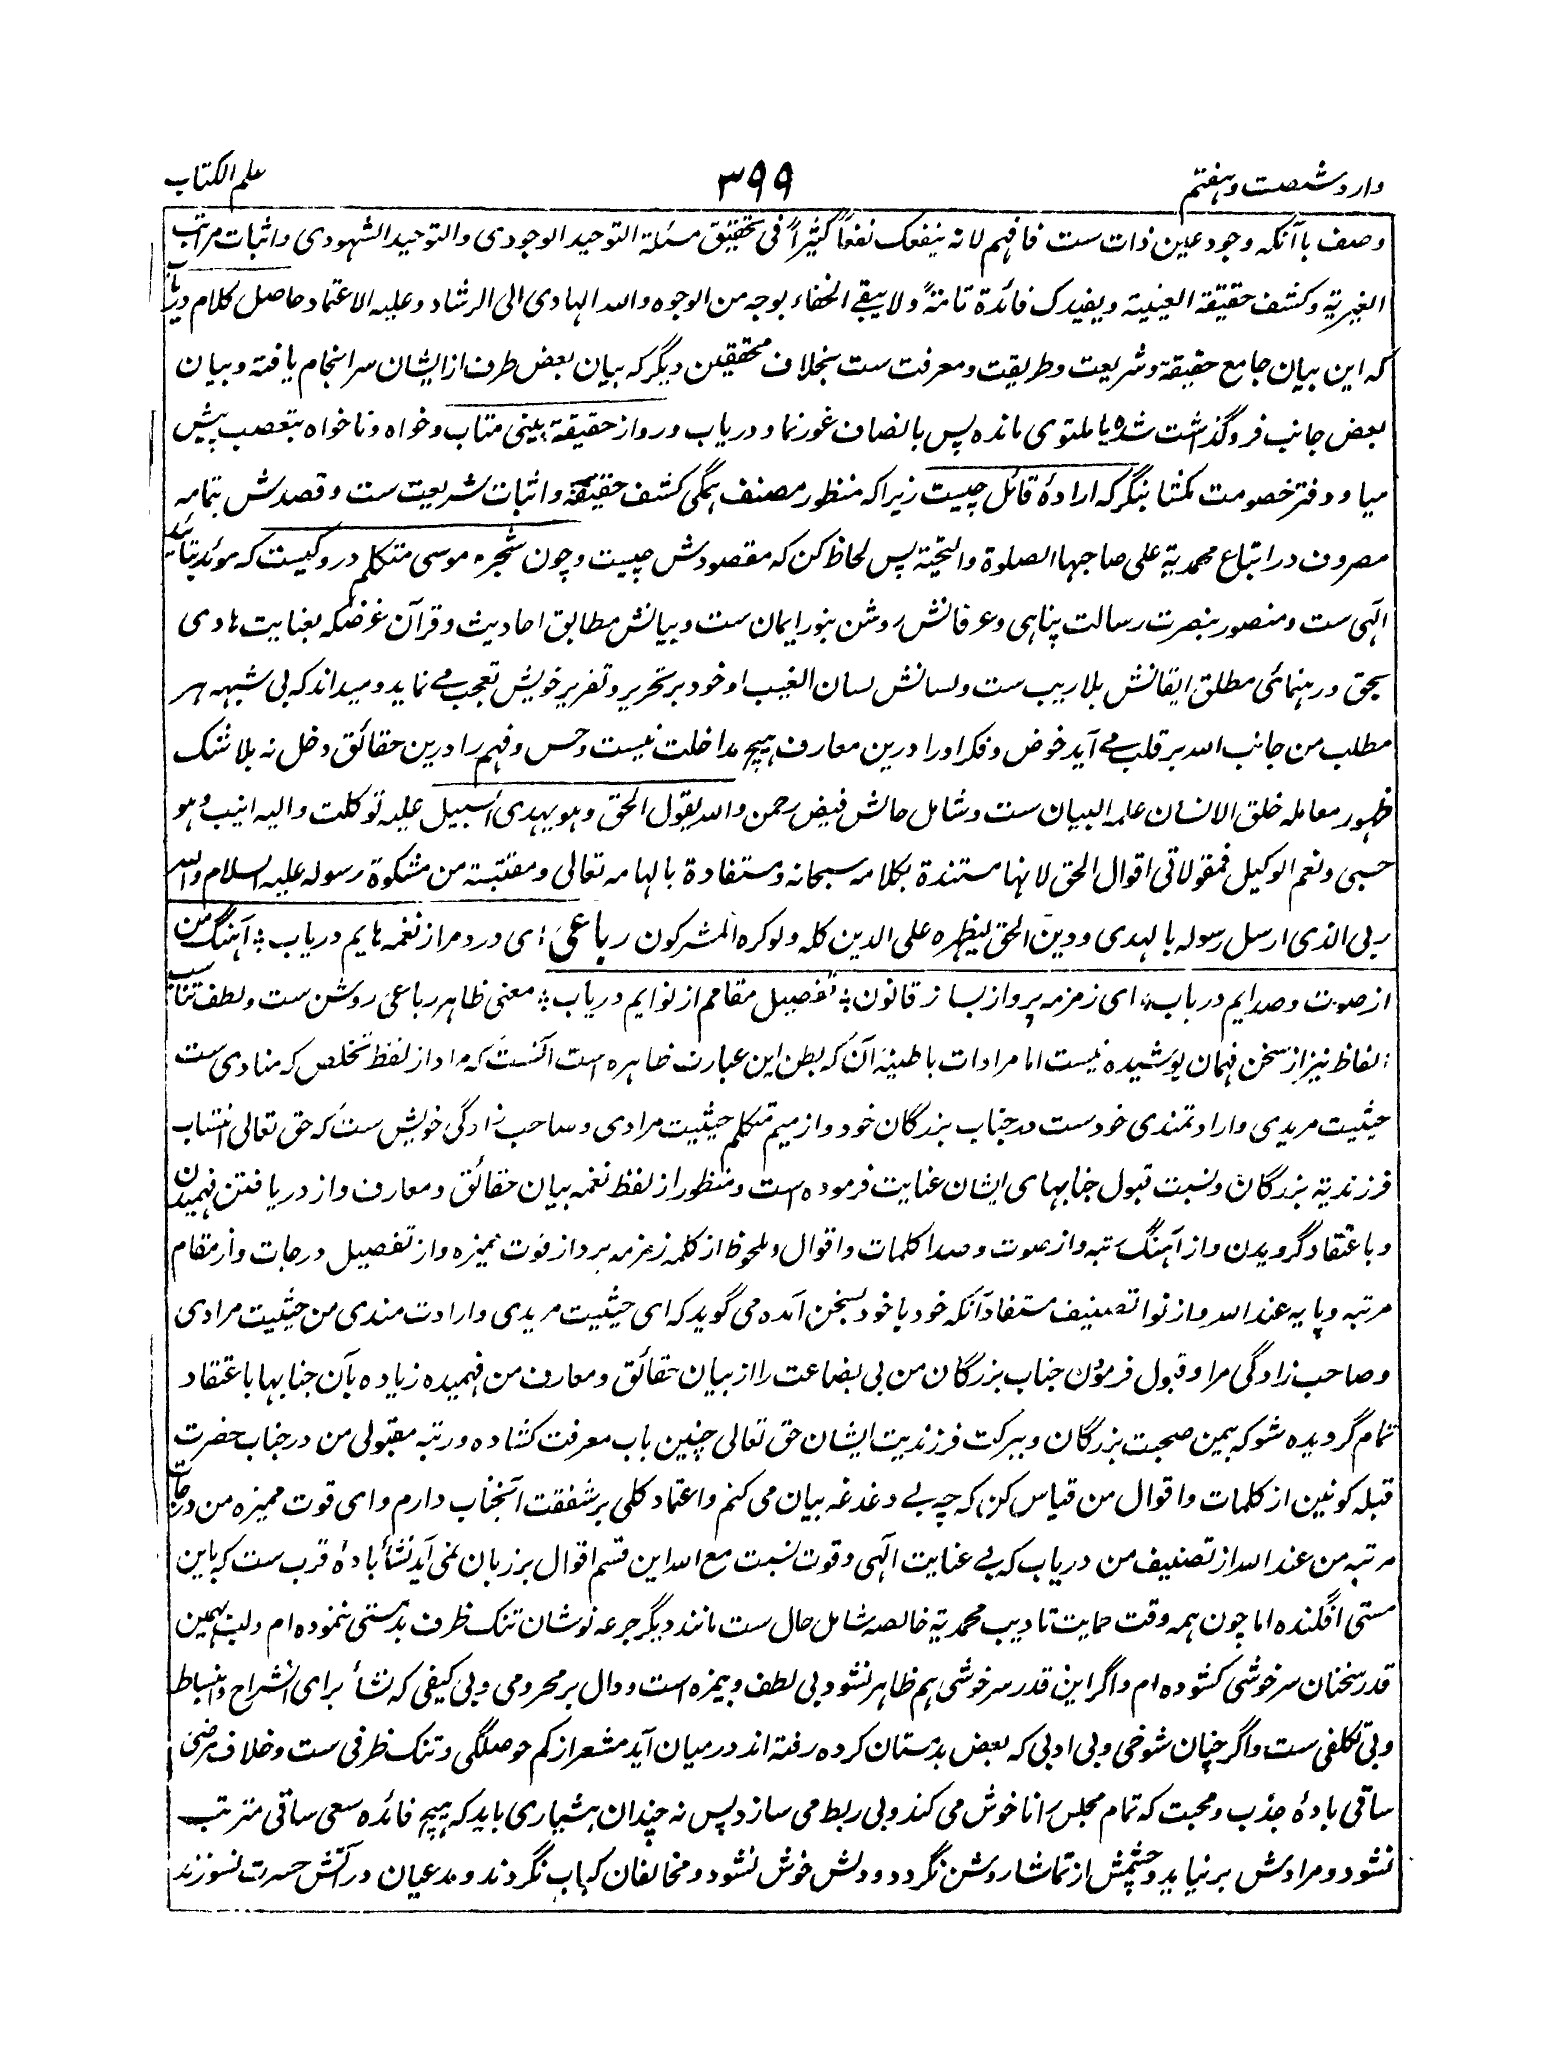 وارد شصت و هفتم
۳۹۹
علم الکتاب
وصف با آنکه وجود عین ذات ست فافهم لانه ینفعک نفعاً کثیراً فی تحقیق مسئلة التوحید الوجودی والتوحید الشهودی واثبات مراتب
الغیریة وکشف حقیقة العینیة ویفیدک فائدة تامة ولا یبقے الخفاء بوجه من الوجوه والله الهادی الی الرشاد وعلیه الاعتماد حاصل کلام دریاب
که این بیان جامع حقیقة وشریعت وطریقت ومعرفت ست بخلاف محققین دیگر که بیان بعض طرف از ایشان سرانجام یافته وبیان
بعض جانب فروگذاشت شده یا ملتوی مانده پس بانصاف غور نما ودریاب ورو از حقیقة بینی متاب وخواه وناخواه بتعصب پیش
میا ودفتر خصومت مکشا بنگر که ارادۀ قائل چیست زیرا که منظور مصنف همگی کشف حقیقة واثبات شریعت ست وقصدش بتمامه
مصروف در اتباع محمدیة علی صاحبها الصلوة والتحیة پس لحاظ کن که مقصودش چیست وچون شجره موسی متکلم درو کیست که موئد بتائید
الٰهی ست ومنصور بنصرت رسالت پناهی وعرفانش روشن بنور ایمان ست وبیانش مطابق احادیث وقرآن غرضکه بعنایت هادی
بحق ورهنمائی مطلق ایقانش بلا ریب ست ولسانش لسان الغیب او خود بر تحریر وتقریر خویش تعجب مے نماید ومیداند که بی شبهه هر
مطلب من جانب الله بر قلب مے آید خوض وفکر او را درین معارف هیچ مداخلت نیست وحس وفهم را درین حقائق دخل نه بلا شک
ظهور معامله خلق الانسان علمه البیان ست وشامل حالش فیض رحمن والله یقول الحق وهو یهدی السبیل علیه توکلت والیه انیب وهو
حسبی ونعم الوکیل فمقولاتی اقوال الحق لانها مستندة بکلامه سبحانه ومستفادة بالهامه تعالی ومقتبسة من مشکوة رسوله علیه السلام والله
ربی الذی ارسل رسوله بالهدی ودین الحق لیظهره علی الدین کله ولو کره المشرکون رباعی ای درد مرا ز نغمه هایم دریاب ؛ آهنگ من
از صوت وصدایم دریاب ؛ ای زمزمه پرواز بساز قانون ؛ تفصیل مقامم از نوایم دریاب ؛ معنی ظاهر رباعی روشن ست ولطف تناسب
الفاظ نیز از سخن فهمان پوشیده نیست اما مرادات باطنیه آن که بطن این عبارت ظاهره است آنست که مراد از لفظ تخلص که منادی ست
حیثیت مریدی وارادتمندی خودست در جناب بزرگان خود واز میم متکلم حیثیت مرادی وصاحب زادگی خویش ست که حق تعالی انتساب
فرزندیة بزرگان ونسبت قبول جنابهای ایشان عنایت فرموده است ومنظور از لفظ نغمه بیان حقائق ومعارف واز دریافتن فهمیدن
وباعتقاد گرویدن واز آهنگ رتبه واز صوت وصدا کلمات واقوال وملحوظ از کلمه زمزمه پرداز قوت ممیزه واز تفصیل درجات واز مقام
مرتبه وپایه عند الله واز نوا تصنیف مستفاد آنکه خود با خود بسخن آمده می گوید که ای حیثیت مریدی وارادت مندی من حیثیت مرادی
وصاحب زادگی مرا وقبول فرمودن جناب بزرگان من بی بضاعت را از بیان حقائق ومعارف من فهمیده زیاده بآن جنابها باعتقاد
تمام گرویده شو که بیمن صحبت بزرگان وببرکت فرزندیت ایشان حق تعالی چنین باب معرفت کشاده ورتبه مقبولی من در جناب حضرت
قبله کونین از کلمات واقوال من قیاس کن که چه بے دغدغه بیان می کنم واعتماد کلی بر شفقت آنجناب دارم وای قوت ممیزه من درجات
مرتبه من عند الله از تصنیف من دریاب که بے عنایت الٰهی وقوت نسبت مع الله این قسم اقوال بر زبان نمی آید نشأ بادۀ قرب ست که باین
مستی افگنده اما چون همه وقت حمایت تادیب محمدیة خالصه شامل حال ست مانند دیگر جرعه نوشان تنک ظرف بدمستی ننموده ام ولب بهمین
قدر سخنان سرخوشی کشوده ام واگر این قدر سرخوشی هم ظاهر نشود بی لطف وبیمزه است ودال بر محرومی وبی کیفی که نشأ برای انشراح وانبساط
وبی تکلفی ست واگر چنان شوخی وبی ادبی که بعض بدمستان کرده رفته اند در میان آید مشعر از کم حوصلگی وتنک ظرفی ست وخلاف مرضی
ساقی بادۀ جذب ومحبت که تمام مجلس را ناخوش می کند وبی ربط می سازد پس نه چندان هشیاری باید که هیچ فائده سعی ساقی مترتب
نشود ومرادش برنیاید وچشمش از تماشا روشن نگردد ودلش خوش نشود ومخالفان کباب نگردند ومدعیان در آتش حسرت نسوزند